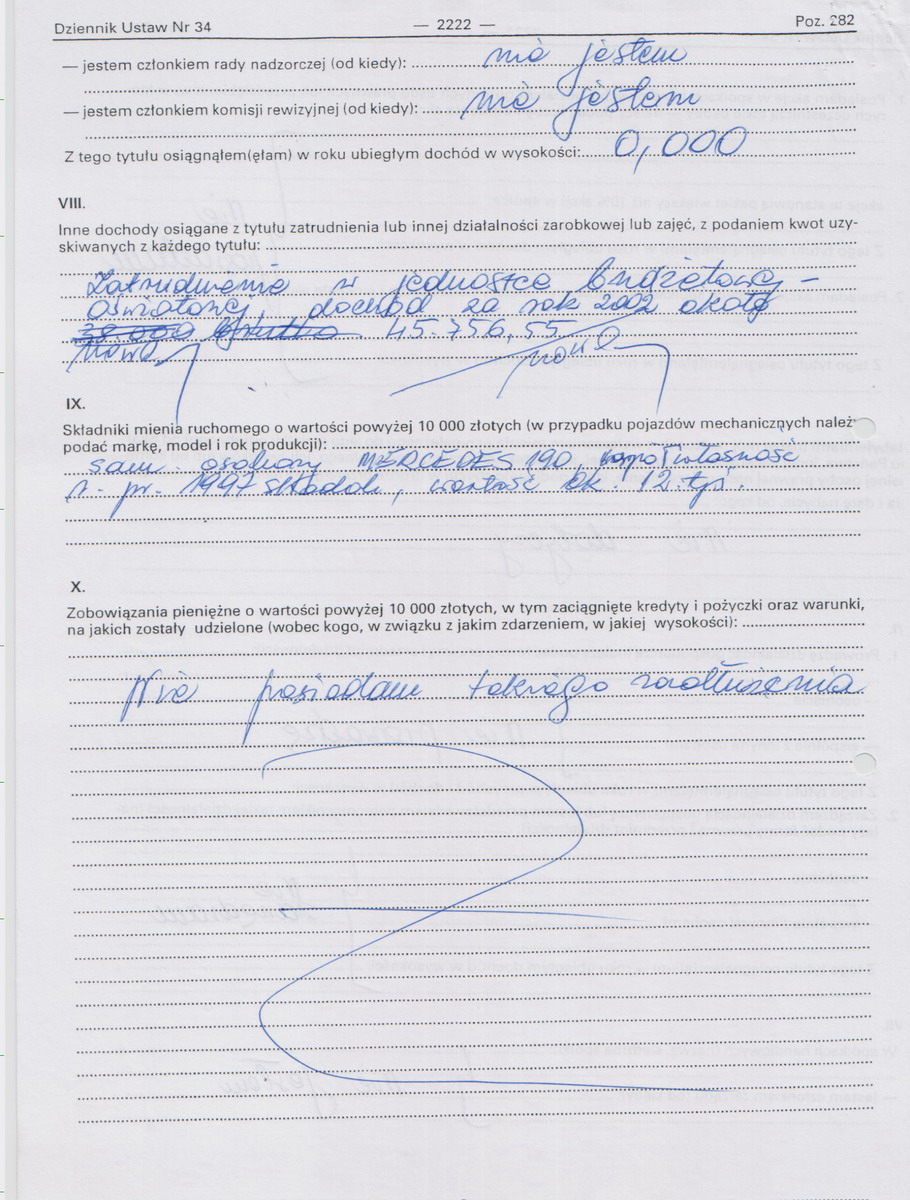 Dziennik Ustaw Nr 34 — 2222 — Poz. 282
— jestem członkiem rady nadzorczej (od kiedy): nie jestem
— jestem członkiem komisji rewizyjnej (od kiedy): nie jestem
Z tego tytułu osiągnąłem(ęłam) w roku ubiegłym dochód w wysokości: 0,000
VIII.
Inne dochody osiągane z tytułu zatrudnienia lub innej działalności zarobkowej lub zajęć, z podaniem kwot uzy-
skiwanych z każdego tytułu:
Zatrudnienie w jednostce budżetowej -
oświatowej, dochód za rok 2002 około
38.000 brutto. 45.756,55
IX.
Składniki mienia ruchomego o wartości powyżej 10 000 złotych (w przypadku pojazdów mechanicznych należy
podać markę, model i rok produkcji):
sam. osobowy MERCEDES 190, współwłasność
r. pr. 1997 składak, wartość ok. 12. tyś
X.
Zobowiązania pieniężne o wartości powyżej 10 000 złotych, w tym zaciągnięte kredyty i pożyczki oraz warunki,
na jakich zostały udzielone (wobec kogo, w związku z jakim zdarzeniem, w jakiej wysokości):
Nie posiadam takiego zadłużenia